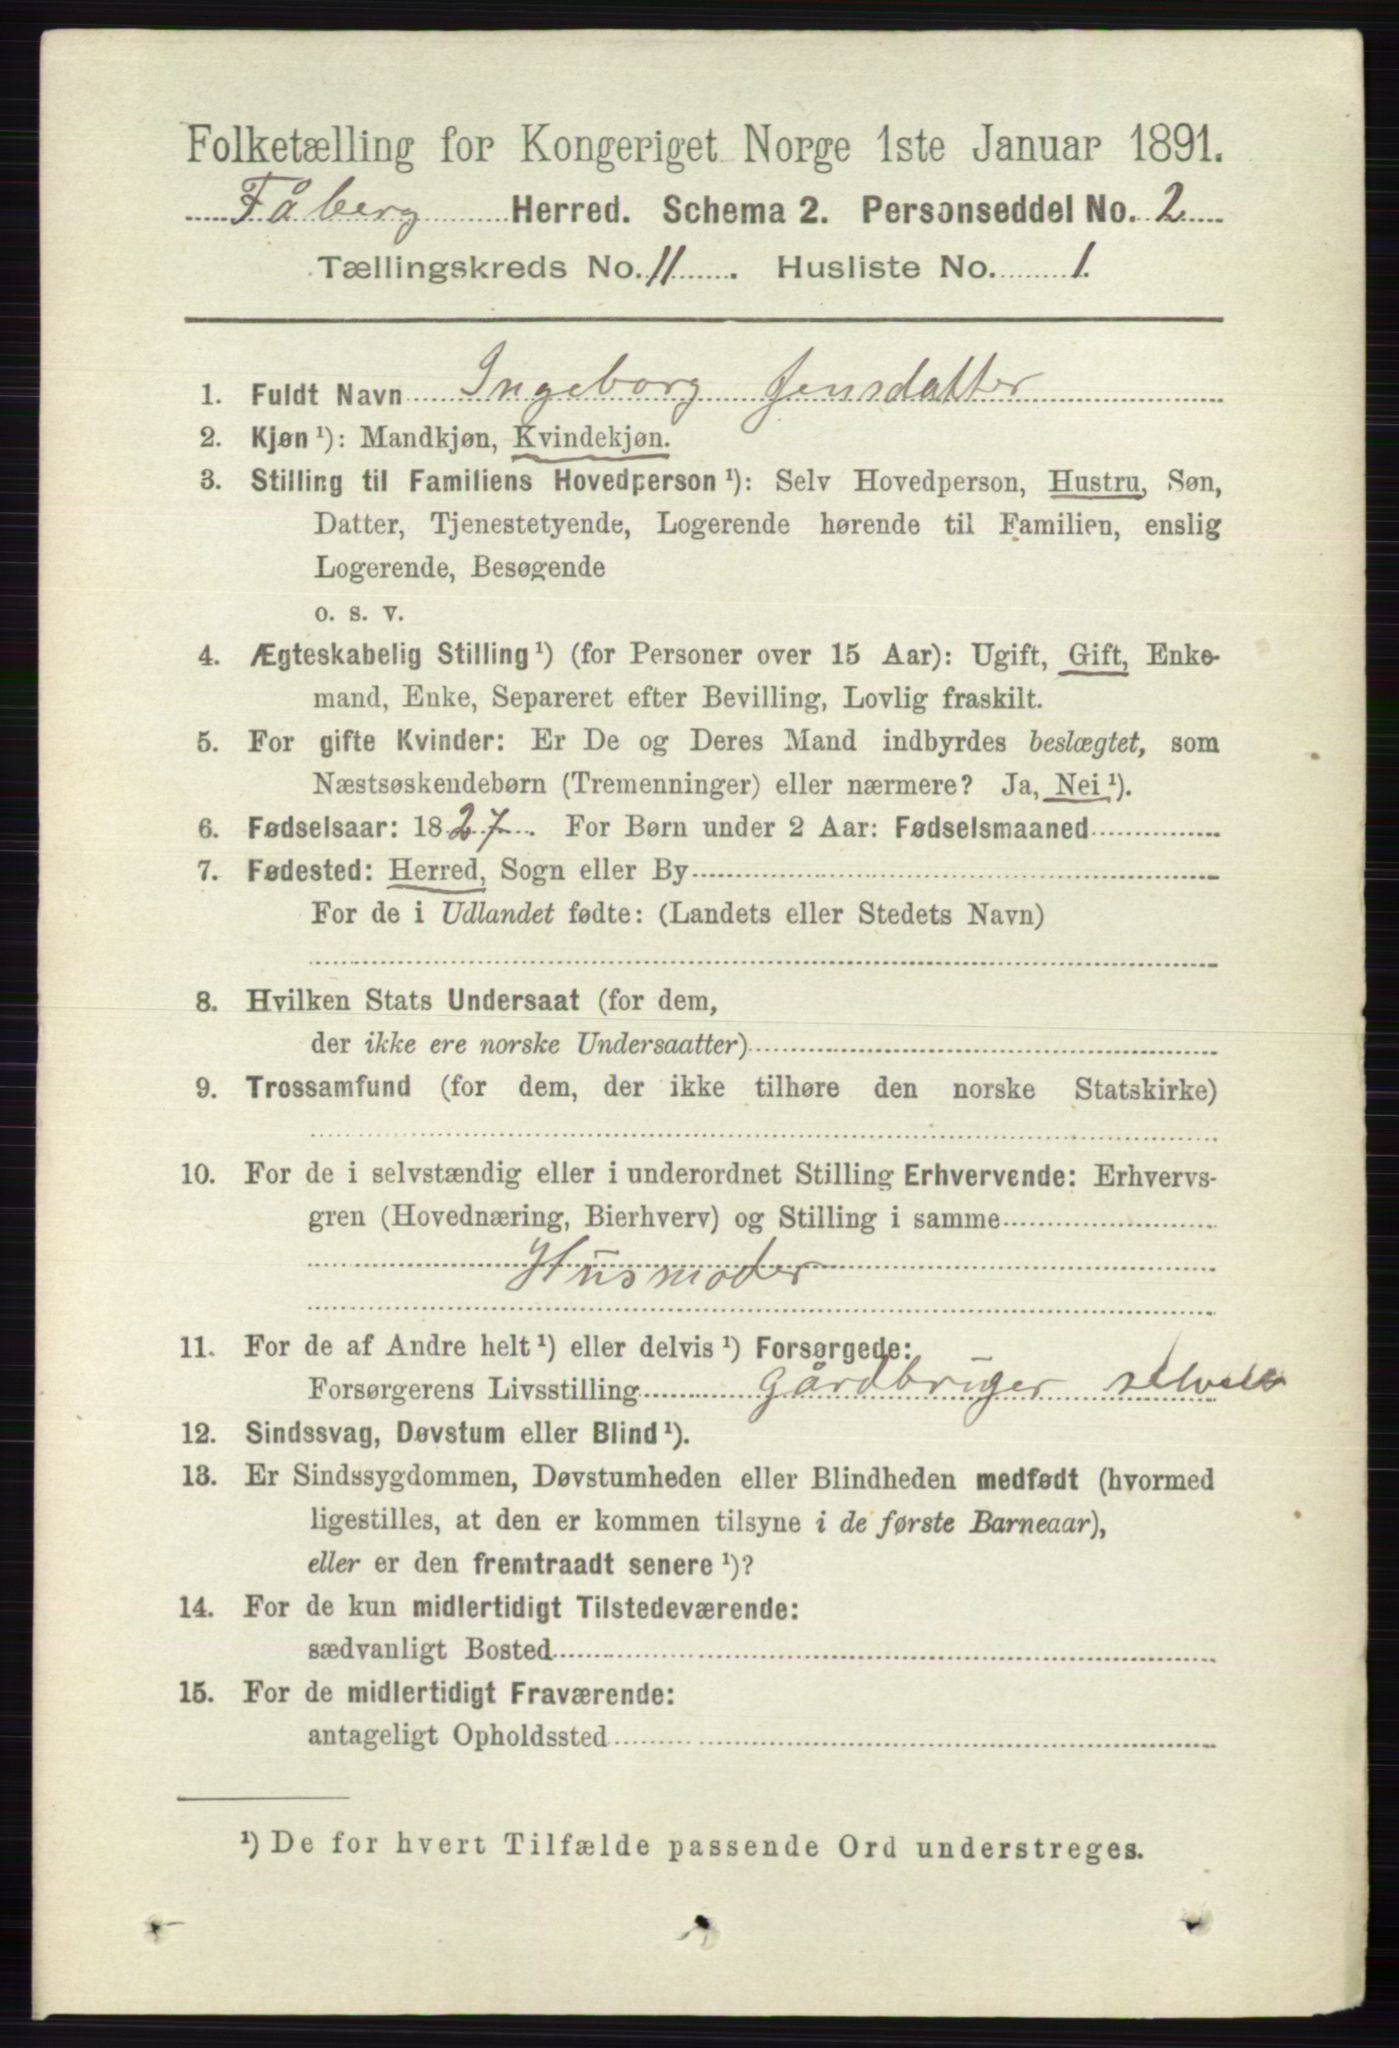 Folketælling for Kongeriget Norge 1ste Januar 1891.
Fåberg Herred. Schema 2. Personseddel No. 2
Tællingskreds No. 11. Husliste No. 1.
1. Fuldt Navn Ingeborg Jensdatter
2. Kjøn ¹): Mandkjøn, Kvindekjøn.
3. Stilling til Familiens Hovedperson ¹): Selv Hovedperson, Hustru, Søn,
Datter, Tjenestetyende, Logerende hørende til Familien, enslig
Logerende, Besøgende
o. s. v.
4. Ægteskabelig Stilling ¹) (for Personer over 15 Aar): Ugift, Gift, Enke-
mand, Enke, Separeret efter Bevilling, Lovlig fraskilt.
5. For gifte Kvinder: Er De og Deres Mand indbyrdes beslægtet, som
Næstsøskendebørn (Tremenninger) eller nærmere? Ja, Nei ¹).
6. Fødselsaar: 1827. For Børn under 2 Aar: Fødselsmaaned
7. Fødested: Herred, Sogn eller By
For de i Udlandet fødte: (Landets eller Stedets Navn)
8. Hvilken Stats Undersaat (for dem,
der ikke ere norske Undersaatter)
9. Trossamfund (for dem, der ikke tilhøre den norske Statskirke)
10. For de i selvstændig eller i underordnet Stilling Erhvervende: Erhvervs-
gren (Hovednæring, Bierhverv) og Stilling i samme
Husmoder
11. For de af Andre helt ¹) eller delvis ¹) Forsørgede:
Forsørgerens Livsstilling Gårdbruger
12. Sindssvag, Døvstum eller Blind ¹).
13. Er Sindssygdommen, Døvstumheden eller Blindheden medfødt (hvormed
ligestilles, at den er kommen tilsyne i de første Barneaar),
eller er den fremtraadt senere ¹)?
14. For de kun midlertidigt Tilstedeværende:
sædvanligt Bosted
15. For de midlertidigt Fraværende:
antageligt Opholdssted
¹) De for hvert Tilfælde passende Ord understreges.